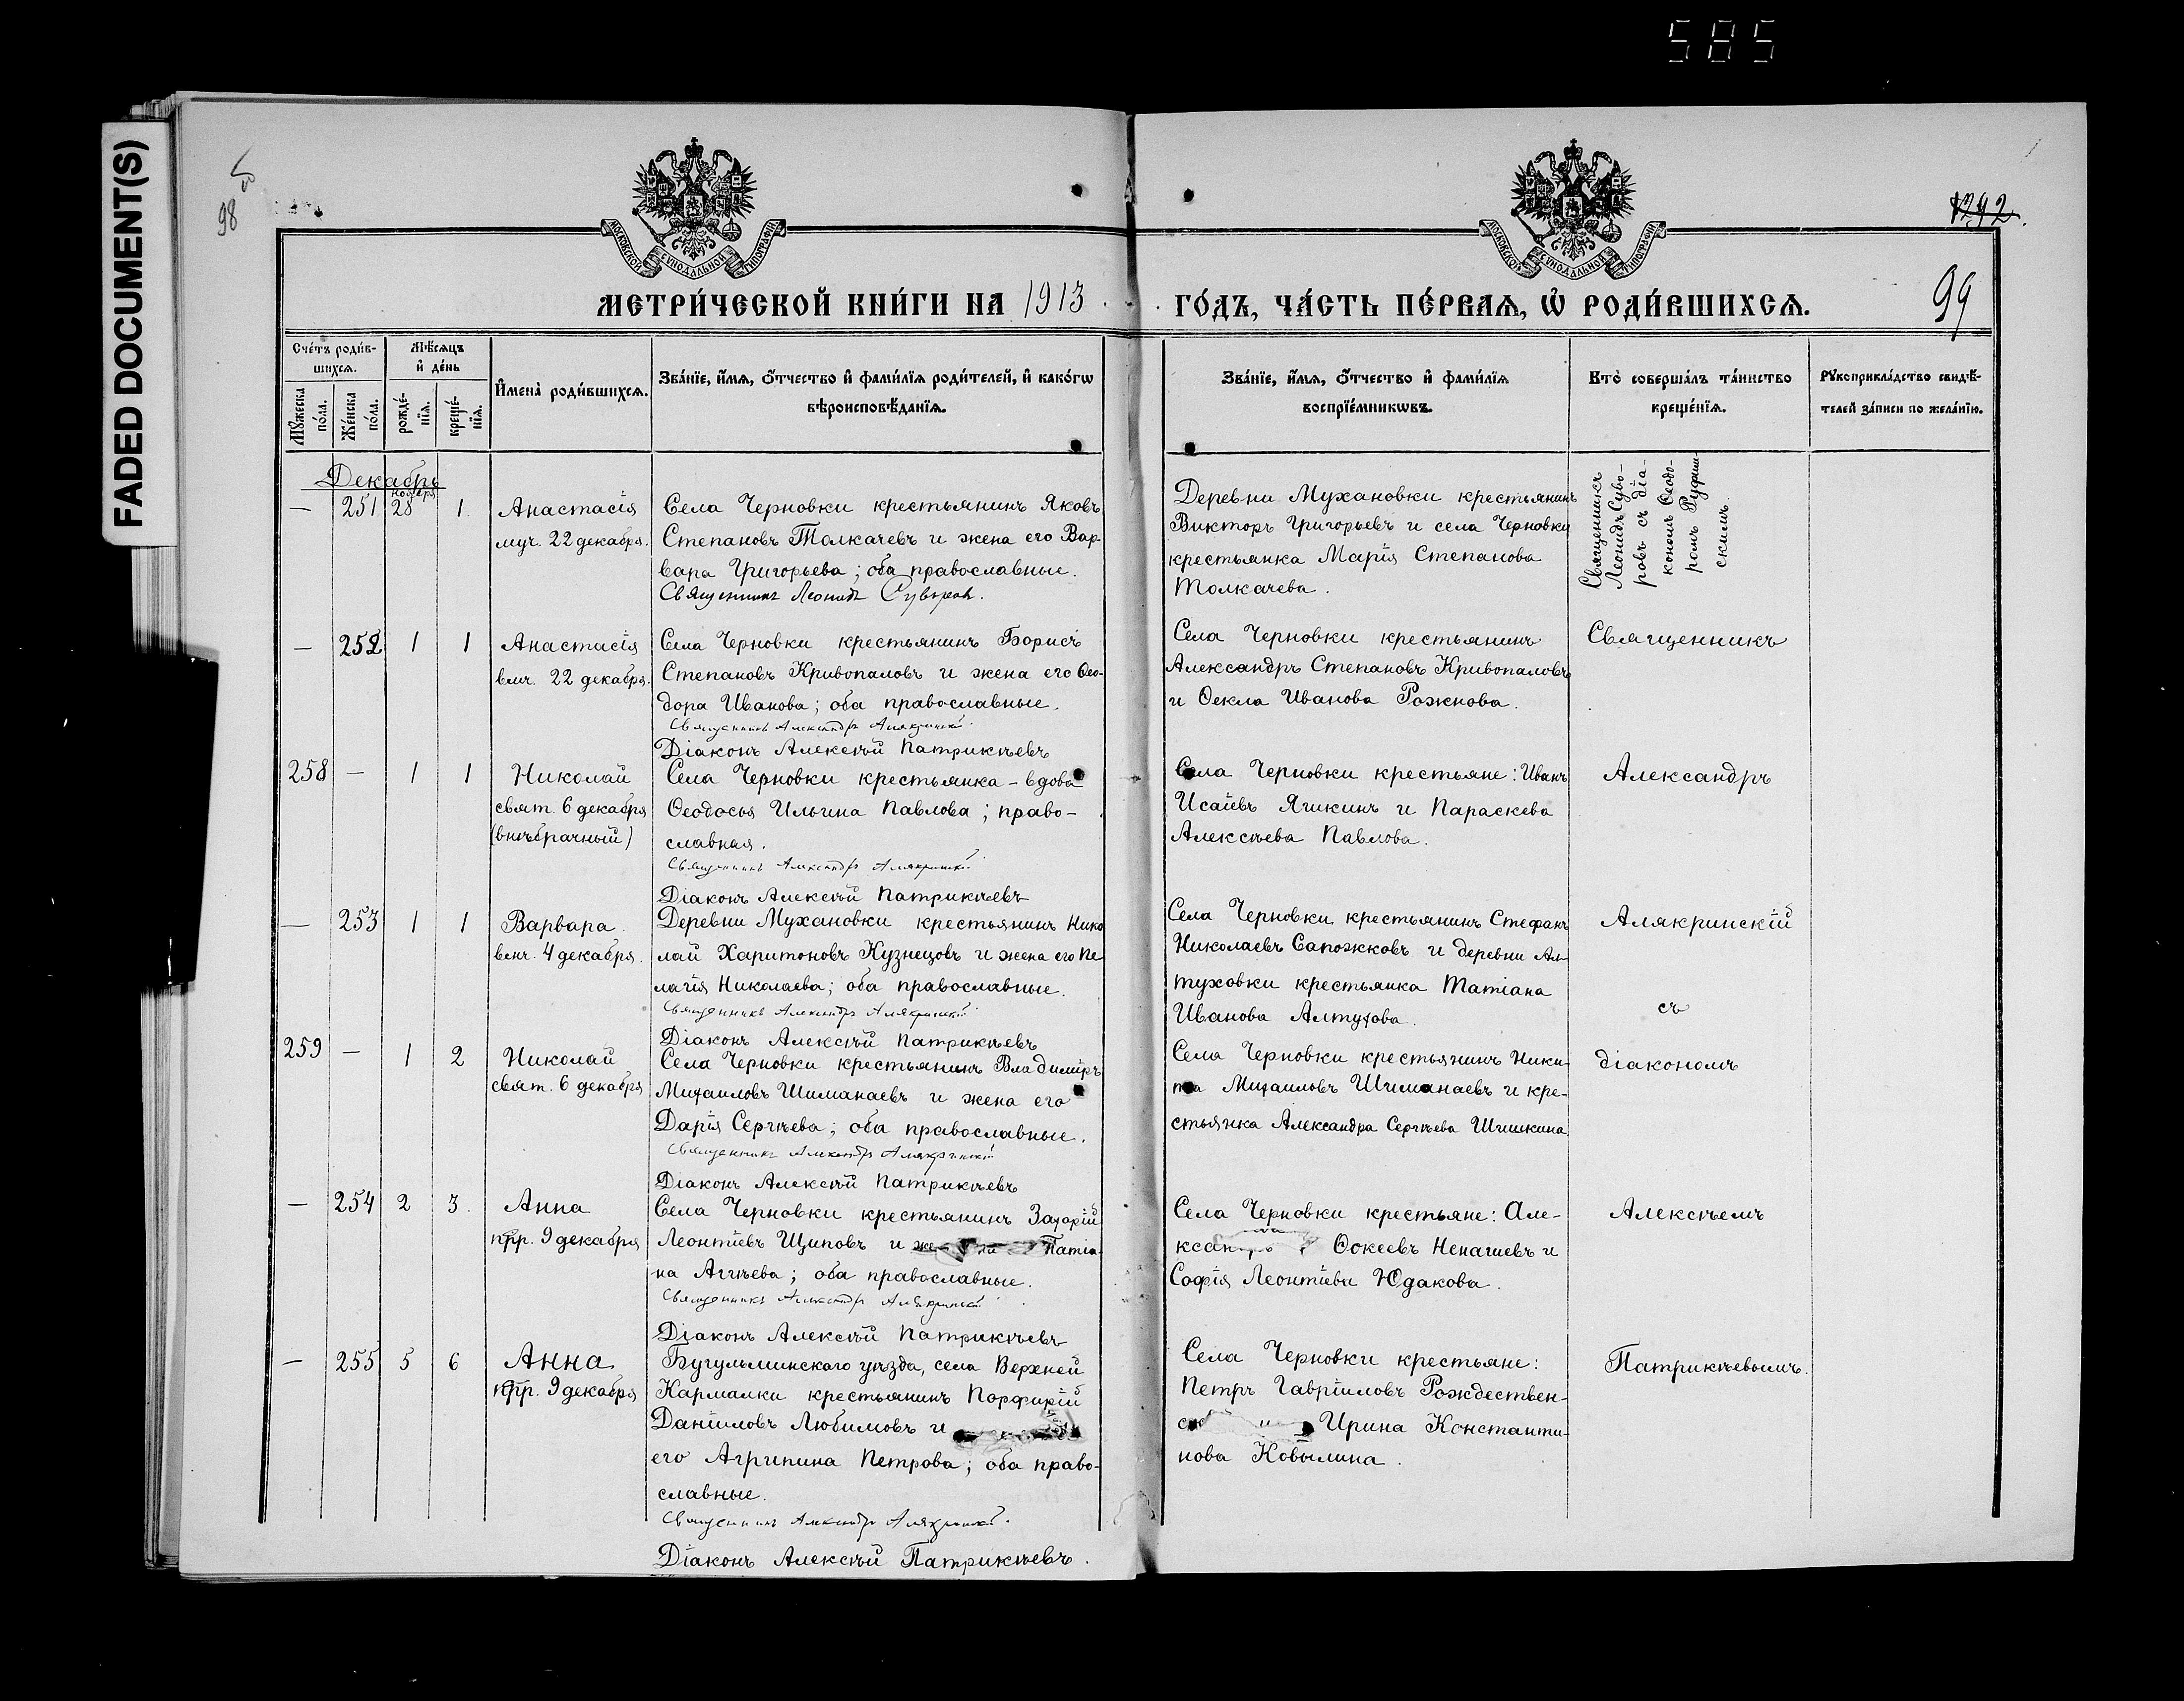 585
FADED DOCUMENT(S)
98
1292.
99
МОСКОВСКОЙ СѴНОДАЛЬНОЙ ТИПОГРАФІИ
МОСКОВСКОЙ СѴНОДАЛЬНОЙ ТИПОГРАФІИ
МЕТРИ́ЧЕСКОЙ КНИ́ГИ НА 1913 ГО́ДЪ, ЧА́СТЬ ПЕ́РВАѦ, Ѡ РОДИ́ВШИХСѦ.
Сче́тъ роди́в-
шихсѧ.
Мѹжеска по́ла.
Же́нска по́ла.
Мѣ́сѧцъ
и҆ де́нь
рожде́-
нїѧ.
креще́-
нїѧ.
И҆мена̀ роди́вшихсѧ.
Зва́нїе, и҆́мѧ, ѻ҆́тчество и҆ фами́лїѧ роди́телей, и҆ како́гѡ
вѣроисповѣ́данїѧ.
Зва́нїе, и҆́мѧ, ѻ҆́тчество и҆ фами́лїѧ
воспрїе́мникѡвъ.
Кто̀ соверша́лъ та́инство
креще́нїѧ.
Рꙋкоприкла́дство свидѣ́-
телей за́писи по жела́нїю.
Декабрь
— 251 ноября 28 1. Анастасія
муч. 22 декабря.
Села Черновки крестьянинъ Яковъ
Степановъ Толкачевъ и жена его Вар-
вара Григорьева; оба православные.
Священникъ Леонидъ Суворовъ.
Деревни Мухановки крестьянинъ
Викторъ Григорьевъ и села Черновки
крестьянка Марія Степанова
Толкачева.
Священникъ
Леонидъ Суво-
ровъ съ діа-
кономъ Ѳеодо-
ромъ Руфим-
скимъ.
— 252 1 1 Анастасія
влмч. 22 декабря.
Села Черновки крестьянинъ Борисъ
Степановъ Кривопаловъ и жена его Ѳео-
дора Иванова; оба православные.
Священникъ Александръ Алякринскій
Діаконъ Алексѣй Патрикѣевъ
Села Черновки крестьянинъ
Александръ Степановъ Кривопаловъ
и Ѳекла Иванова Рожнова.
Священникъ
258 — 1 1 Николай
свят. 6 декабря
(внѣбрачный)
Села Черновки крестьянка – вдова
Ѳеодосья Ильина Павлова; право-
славная.
Священникъ Александръ Алякринскій
Діаконъ Алексѣй Патрикѣевъ
Села Черновки крестьяне: Иванъ
Исаіевъ Ягикинъ и Параскева
Алексѣева Павлова.
Александръ
— 253 1 1 Варвара
влмч. 4 декабря.
Деревни Мухановки крестьянинъ Нико
лай Харитоновъ Кузнецовъ и жена его Пе
лагія Николаева; оба православные.
Священникъ Александръ Алякринскій
Діаконъ Алексѣй Патрикѣевъ
Села Черновки крестьянинъ Стефанъ
Николаевъ Сапожковъ и деревни Ал-
туховки крестьянка Татіана
Иванова Алтухова.
Алякринскій
съ
259 — 1 2 Николай
свят. 6 декабря
Села Черновки крестьянинъ Владимiръ
Михаиловъ Шиманаевъ и жена его
Дарія Сергѣева; оба православные.
Священникъ Александръ Алякринскій
Діаконъ Алексѣй Патрикѣевъ
Села Черновки крестьянинъ Ники-
та Михаиловъ Шиманаевъ и кре-
стьянка Александра Сергѣева Шишкина
діакономъ
— 254 2 3. Анна
прр. 9 декабря
Села Черновки крестьянинъ Захарій
Леонтіевъ Щиповъ и Татіа-
на Аггѣева; оба православные.
Священникъ Александръ Алякринскій
Діаконъ Алексѣй Патрикѣевъ
Села Черновки крестьяне: Але-
ксандръ Ѳокеевъ Ненашевъ и
Софія Леонтіева Юдакова.
Алексѣемъ
— 255 5 6 Анна
прр. 9 декабря
Бугульминскаго уѣзда, села Верхней
Кармалки крестьянинъ Порфирій
Даніиловъ Любимовъ и
его Агрипина Петрова; оба право-
славные.
Священникъ Александръ Алякринскій.
Діаконъ Алексѣй Патрикѣевъ.
Села Черновки крестьяне:
Петръ Гавріиловъ Рождествен-
Ирина Константи-
нова Ковылина.
Патрикѣевымъ.